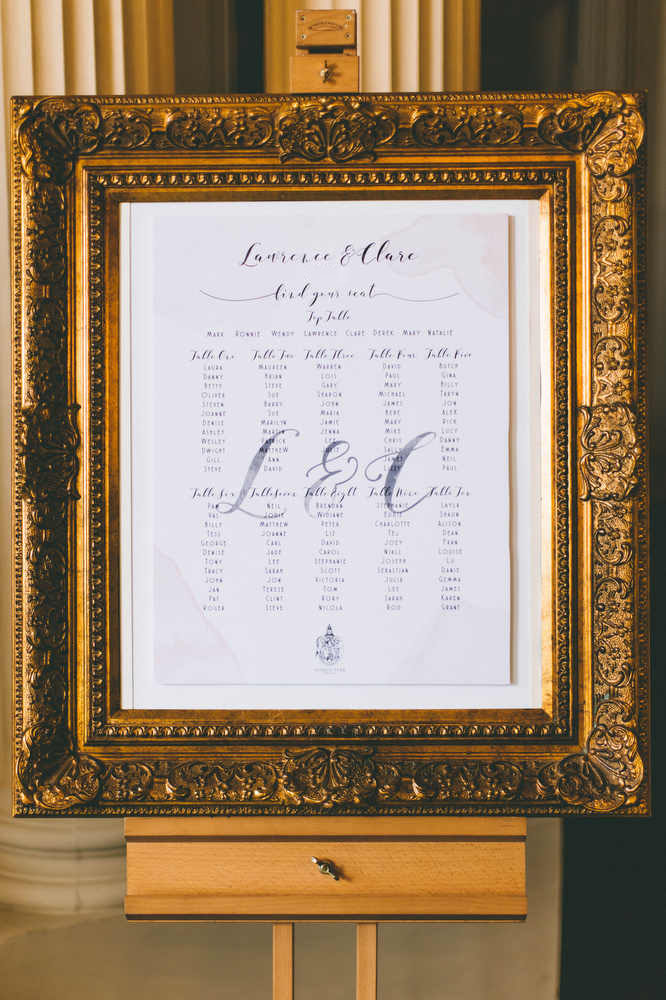 Lawrence & Clare
find your seat
Top Table
MARK RONNIE WENDY LAWRENCE CLARE DEREK MARY NATALIE
Table One
LAURA
DANNY
BETTY
OLIVER
STEVEN
JOANNE
DENISE
ASHLEY
WESLEY
DWIGHT
GILL
STEVE
Table Two
MAUREEN
BRIAN
STEVE
SUE
BARRY
SUE
MARILYN
PATRICK
MATTHEW
ANN
DAVID
Table Three
WARREN
LOIS
GARY
SHARON
JOHN
MARIA
JAMIE
JENNA
LEE
Table Four
DAVID
PAUL
MARY
MICHAEL
JAMES
BEBE
MARY
MIKE
CHRIS
SALLY
JAMES
LIZZY
Table Five
BUTCH
GINA
BILLY
TARYN
JON
ALEX
RICK
LUCY
DANNY
EMMA
NEIL
PAUL
L & C
Table Six
PAM
VAL
BILLY
TESS
GEORGE
DENISE
TONY
TRACY
JOHN
JAN
PAT
ROGER
Table Seven
NEIL
JODIE
MATTHEW
JOANNE
CARL
JADE
LEE
SARAH
JON
TERESE
CLINT
STEVE
Table Eight
BRENDAN
WIDIANE
PETER
LIZ
DAVID
CAROL
STEPHANIE
SCOTT
VICTORIA
TOM
RORY
NICOLA
Table Nine
STEPHANIE
EDDIE
CHARLOTTE
TEJ
JOEY
NIALL
JOSEPH
SEBASTIAN
JULIA
LEE
SARAH
ROD
Table Ten
LAYLA
SHAUN
ALISON
DEAN
FRAN
LOUISE
LU
DANIE
GEMMA
JAMES
KAREN
GRANT